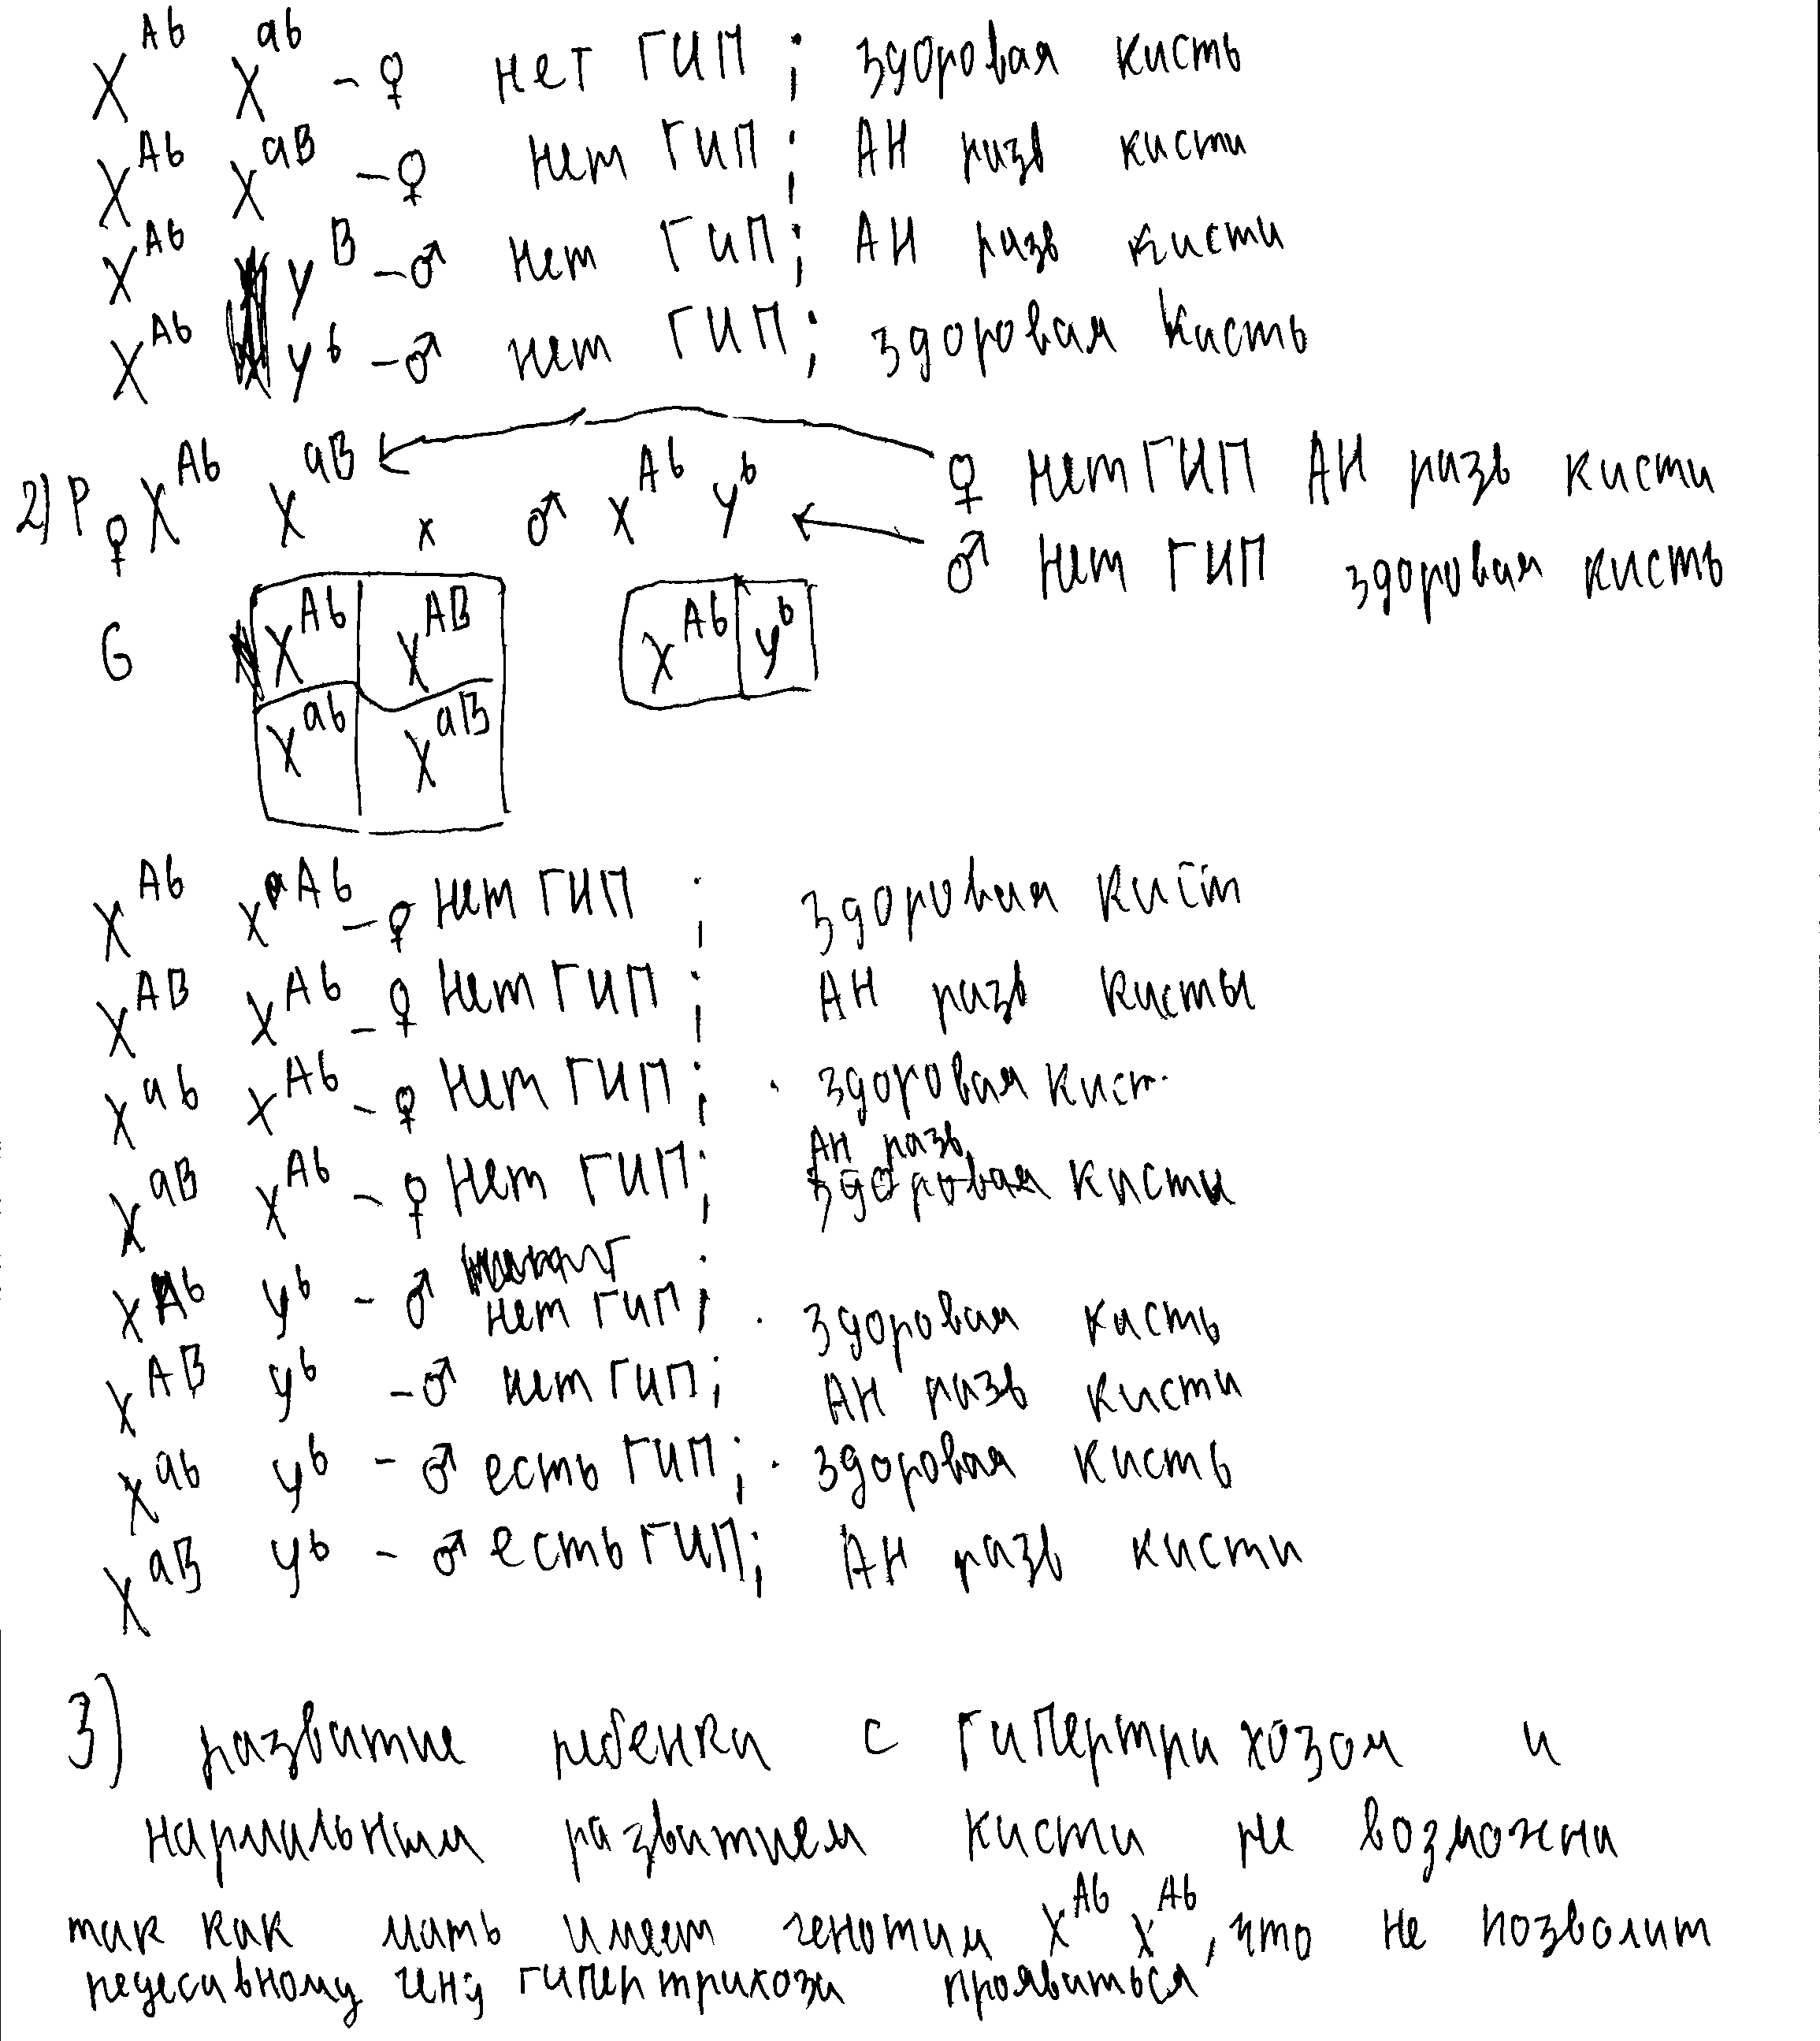 X^Ab X^ab - ♀ нет ГИП ; здоровая кисть
X^Ab X^aB - ♀ нет ГИП ; АН разв кисти
X^Ab y^B - ♂ нет ГИП ; АН разв кисти
X^Ab y^b - ♂ нет ГИП ; здоровая кисть
2) P ♀ X^Ab X^aB x ♂ X^Ab y^b
♀ нет ГИП АН разв кисти
♂ нет ГИП здоровая кисть
G X^Ab X^AB X^Ab y^b
X^ab X^aB
X^Ab X^Ab - ♀ нет ГИП ; здоровая кист
X^AB X^Ab - ♀ нет ГИП ; АН разв кисты
X^ab X^Ab - ♀ нет ГИП ; здоровая кист.
X^aB X^Ab - ♀ нет ГИП ; АН разв кисти
X^Ab y^b - ♂ нет ГИП ; здоровая кисть
X^AB y^b - ♂ нет ГИП ; АН разв кисти
X^ab y^b - ♂ есть ГИП ; здоровая кисть
X^aB y^b - ♂ есть ГИП ; АН разв кисти
3) развитие ребенка с гипертрихозом и
нармальным развитием кисти не возможна
так как мать имеет генотип X^Ab X^Ab, что не позволит
рецесивному гену гипертрихоза проявиться